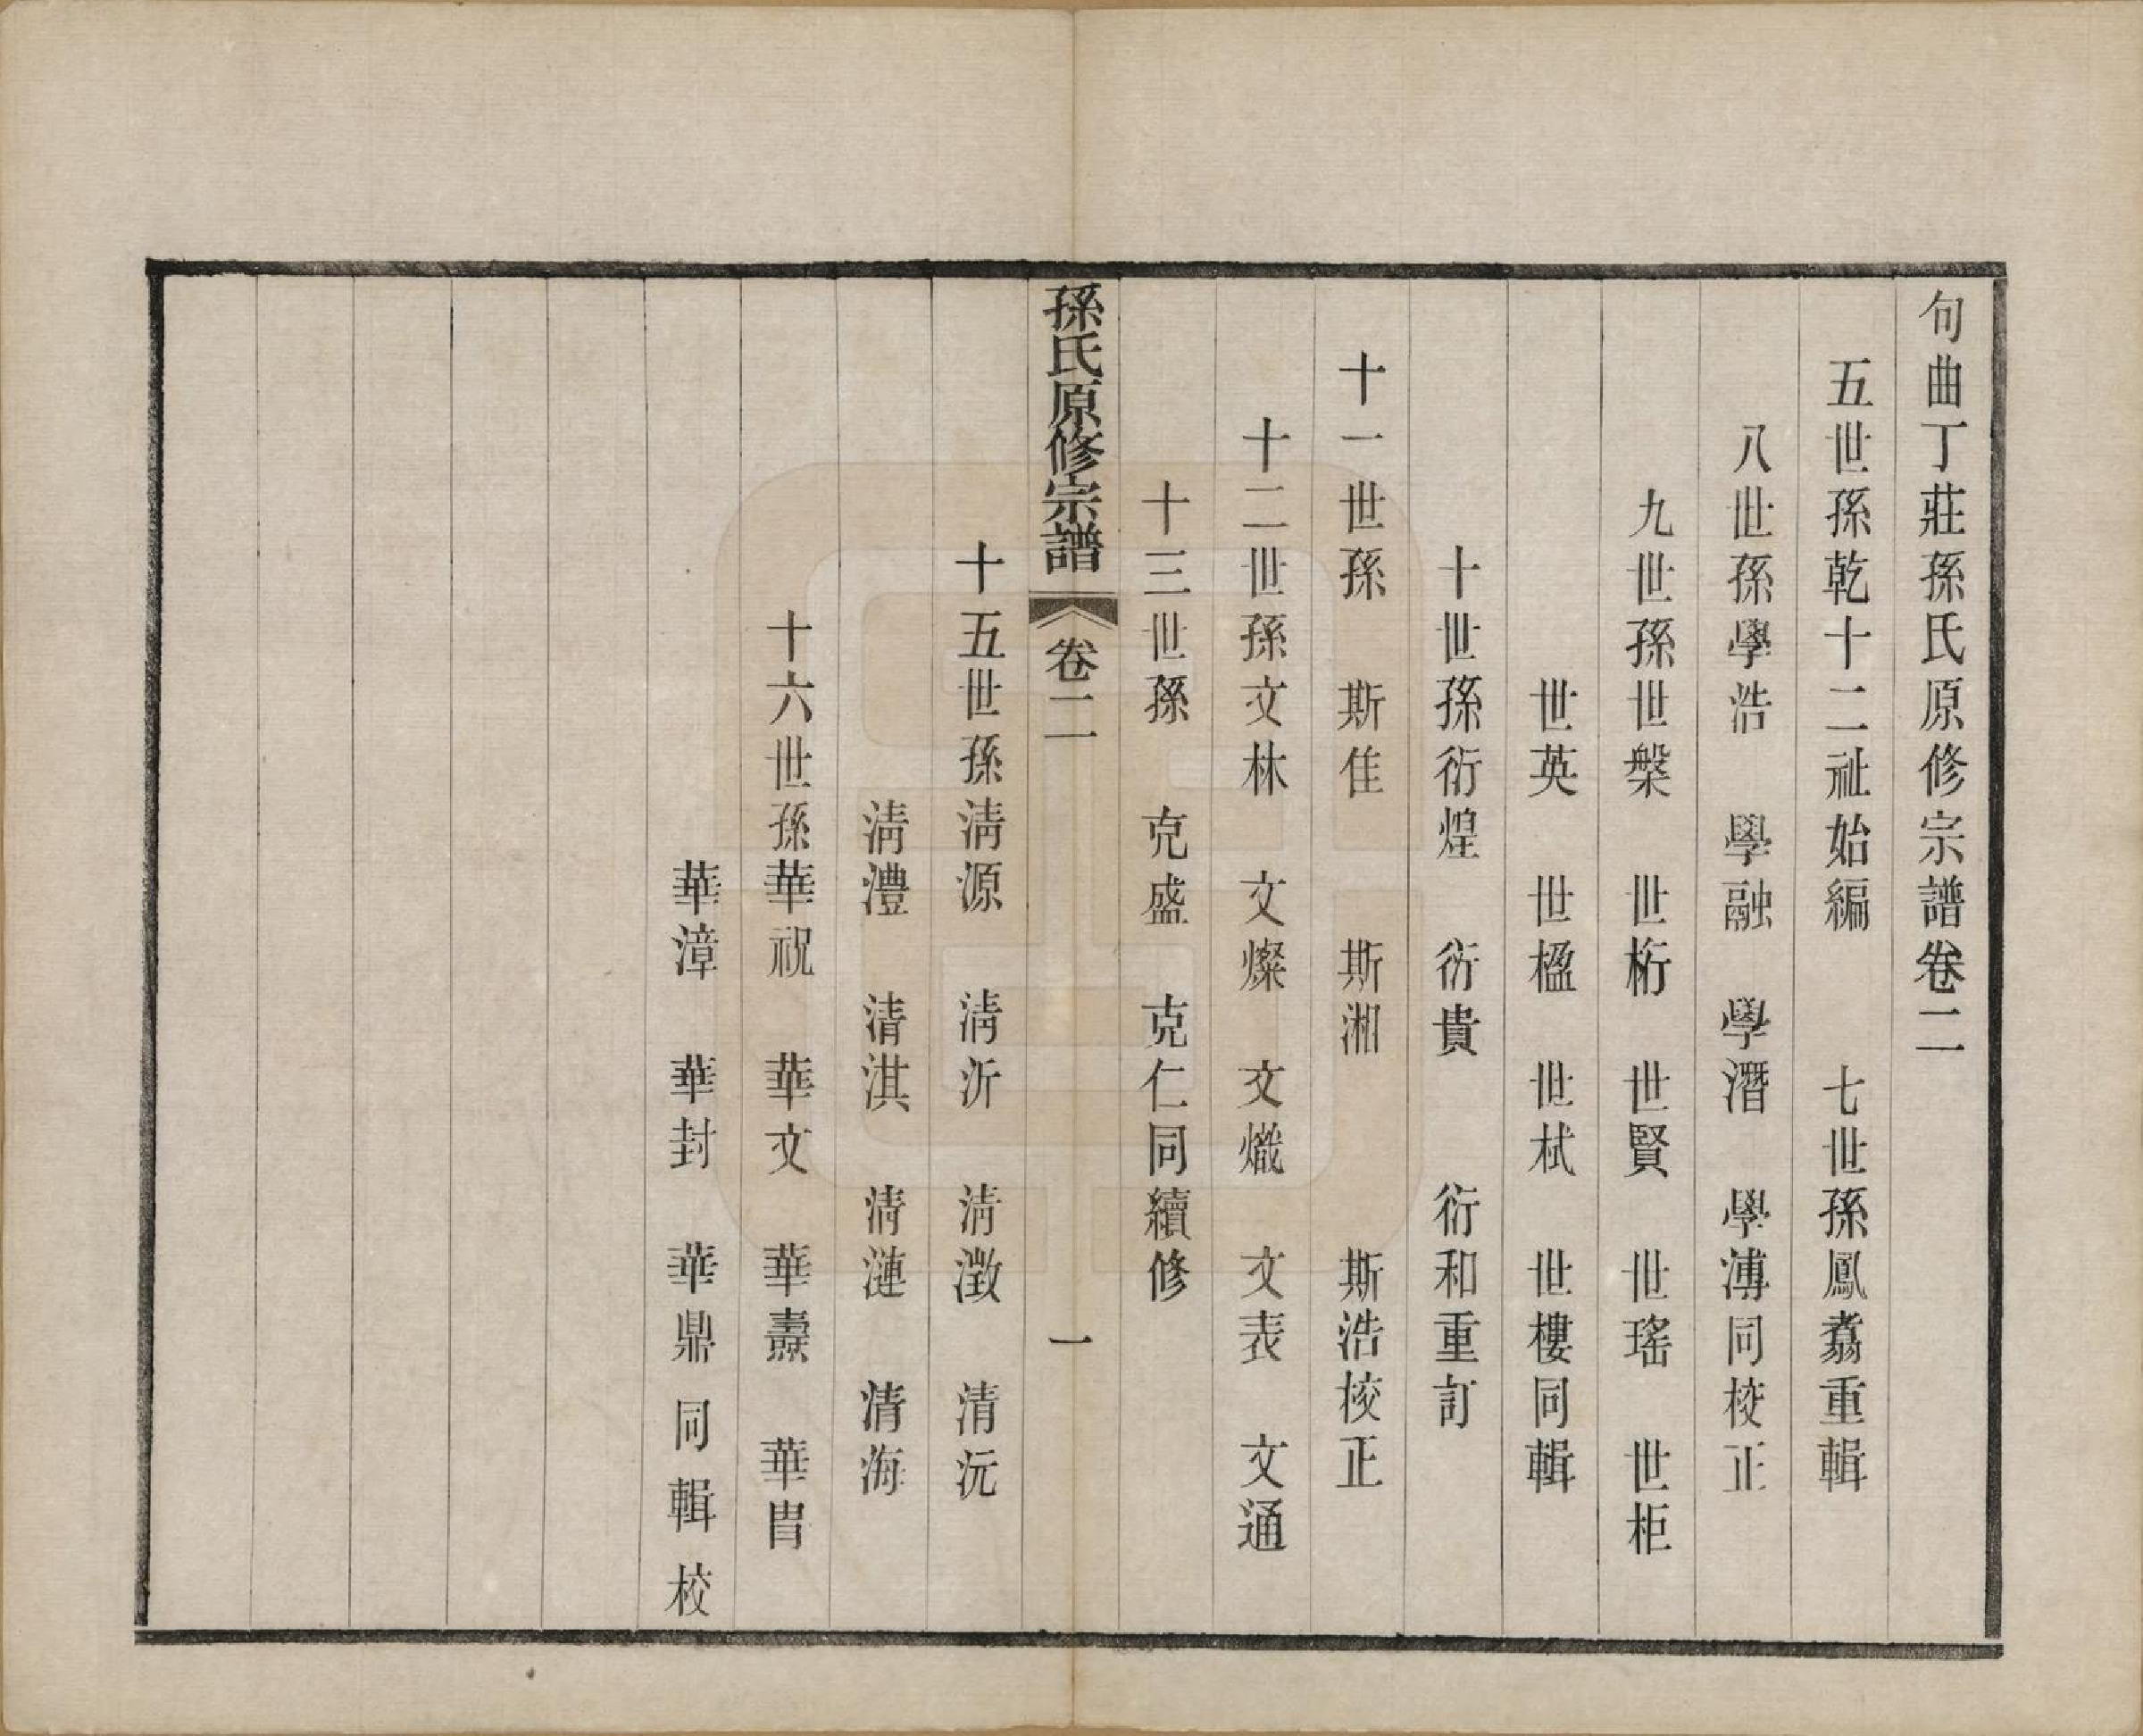 句曲丁莊孫氏原修宗譜卷二
五世孫乾十二祉始編　七世孫鳳翥重輯
八世孫學浩　學融　學潛　學溥同校正
九世孫世槃　世桁　世賢　世瑤　世柜
世英　世楹　世栻　世樓同輯
十世孫衍煌　衍貴　衍和重訂
十一世孫　斯佳　斯湘　斯浩校正
十二世孫文林　文燦　文熾　文表　文通
十三世孫　克盛　克仁同續修
孫氏原修宗譜　卷二　一
十五世孫淸源　淸沂　淸澂　清沅
淸灃　清淇　淸漣　清海
十六世孫華祝　華文　華燾　華胄
華漳　華封　華鼎同輯校